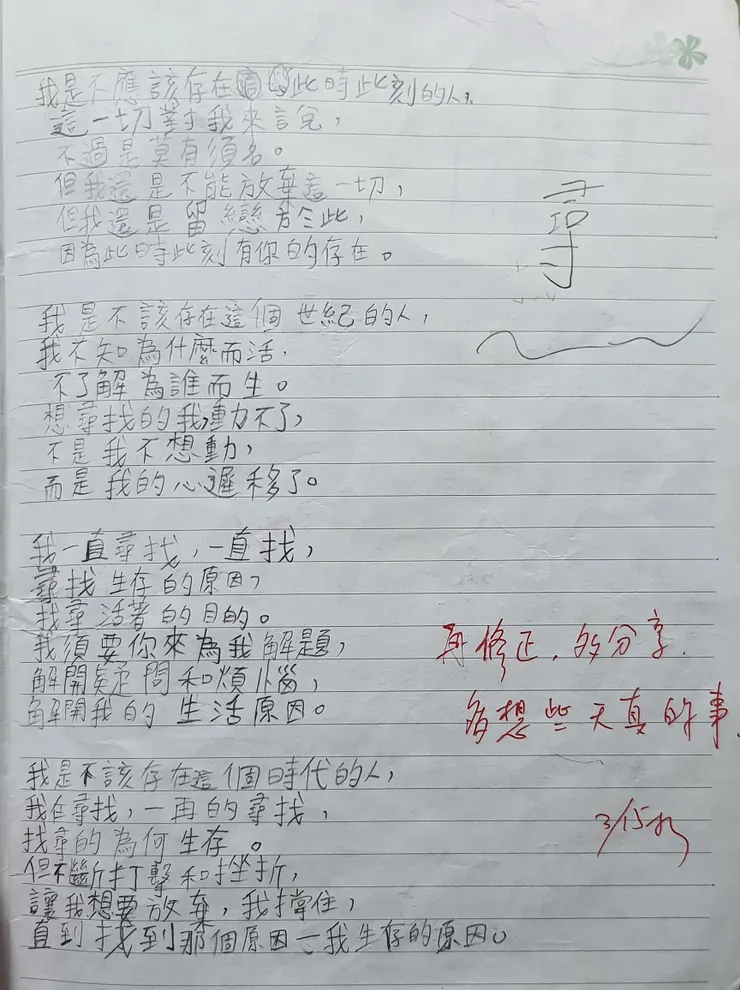 我是不應該存在此時此刻的人,
這一切對我來說,
不過是莫有須名。
但我還是不能放棄這一切,
但我還是留戀於此,
因為此時此刻有你的存在。
我是不該存在這個世紀的人,
我不知為什麼而活,
不了解為誰而生。
想尋找的我,動不了,
不是我不想動,
而是我的心遲移了。
我一直尋找,一直找,
尋找生存的原因,
找尋活著的目的。
我須要你來為我解題,
解開疑問和煩惱,
解開我的生活原因。
再修正.多分享.
多想些天真的事.
我是不該存在這個時代的人,
我在尋找,一再的尋找,
找尋的為何生存。
3/15
但不斷打擊和挫折,
讓我想要放棄,我撐住,
直到找到那個原因—我生存的原因。